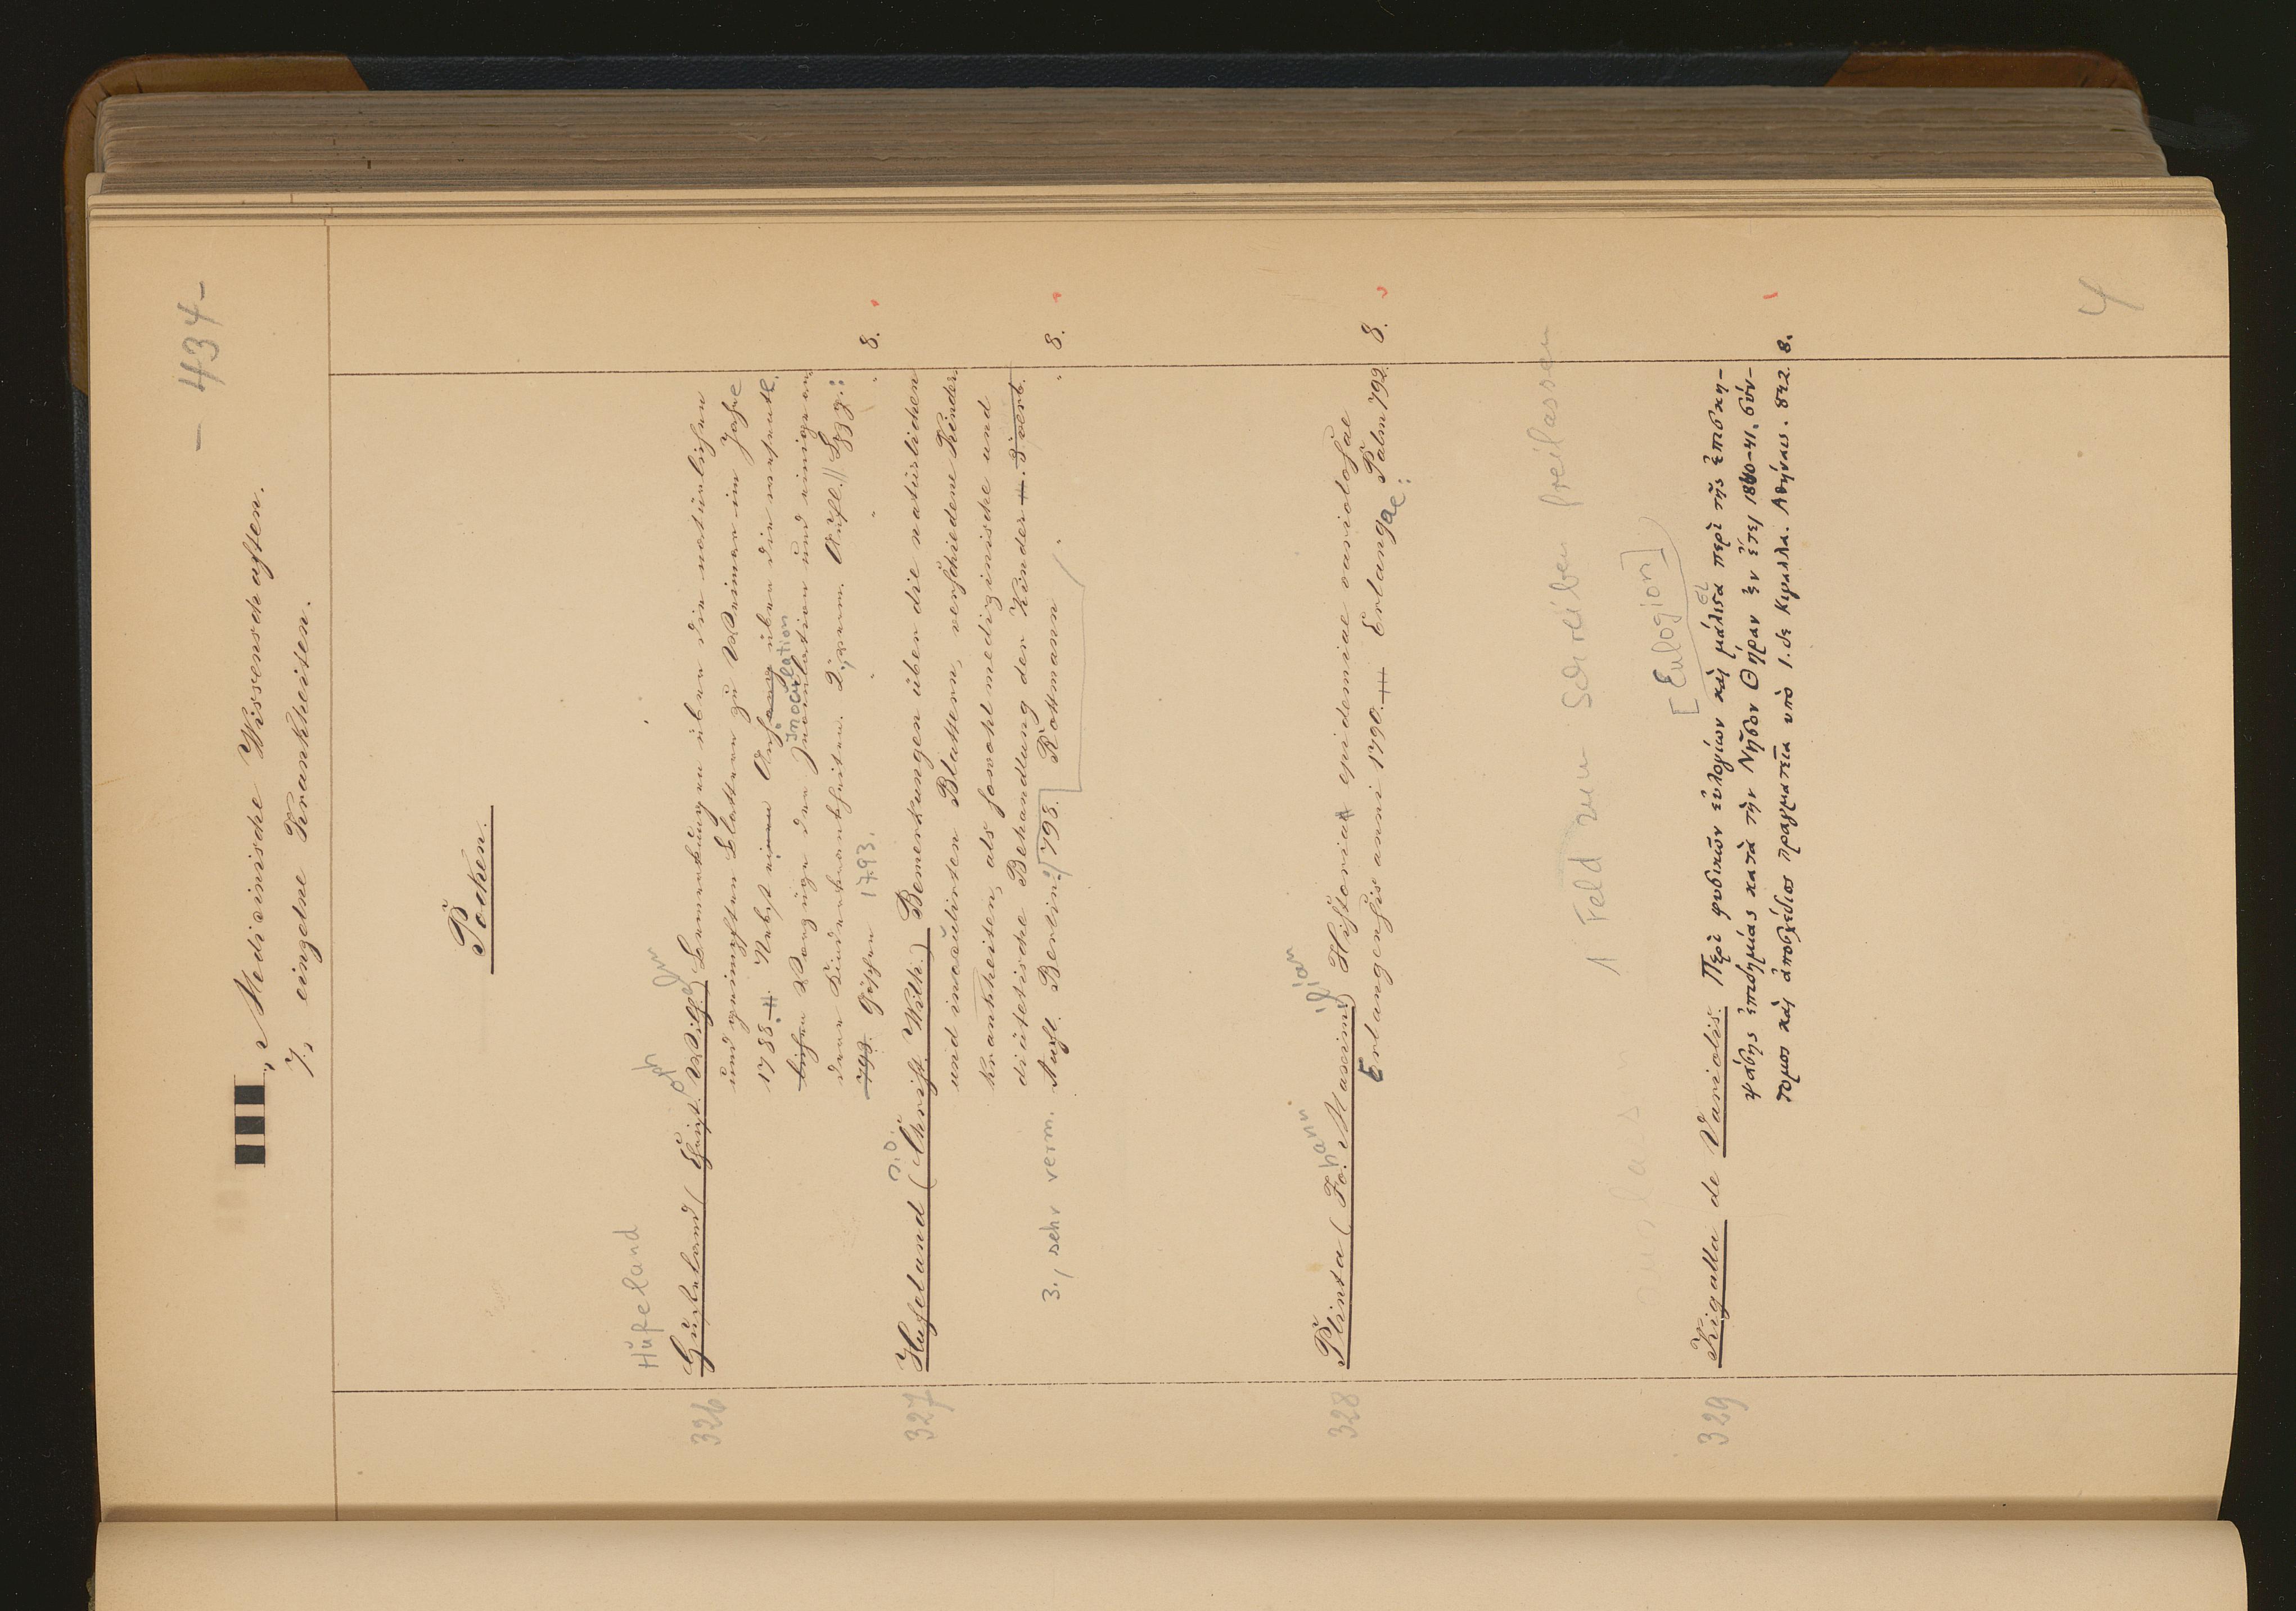 - 434 -
Medizinische Wissenschaften.
7, einzelne Krankheiten.
Pocken.
Hufeland
326 Hufeland (Christoph Wilhelm) Bemerkungen über die natürlichen
und geimpften Blattern zu Weimar im Jahre
1788. Nebst einem Anhang über die wesentl.
lichen Vorzüge der Inoculation und einigen
inoculation
deren Kinderkrankheiten. 2, verm. Aufl. // Lpzg.:
798. Göschen 1793. 8.
327 Hufeland (Christ. Wilh.) Bemerkungen über die natürlichen
und inoculirten Blattern, verschiedene Kinder
krankheiten, als sowohl medizinische und
diätetische Behandlung der Kinder. 3, verb.
3., sehr verm. Aufl. Berlin: 798. Rottmann 8.
328 Plinta (Johann Maximilian) Historia epidemiae variolosae
Erlangensis anni 1790. Erlangae: Palm 792. 8.
1 Feld zum Schreiben freilassen
[Eulogion]
329 Kigalla de Variolis. Περὶ φυσικῶν εὐλογίων καὶ μάλιστα περὶ τῆς ἐπισκη-
ψάσης ἐπιδημίας κατὰ τὴν Νῆσον Θήραν ἐν ἔτει 1840-41. σύν-
τομος καὶ ἀποσχέδιος πραγματεία ὑπὸ Ι. δε Κιγαλλα. Αθήναις. 842. 8.
4